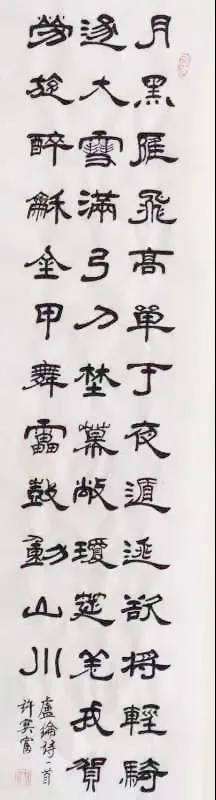 月黑雁飛高單于夜遁逃欲將輕騎
逐大雪滿弓刀埜幕敞瓊筵羌戎賀
勞旋醉龢金甲舞靁鼓動山川
盧綸詩一首
許